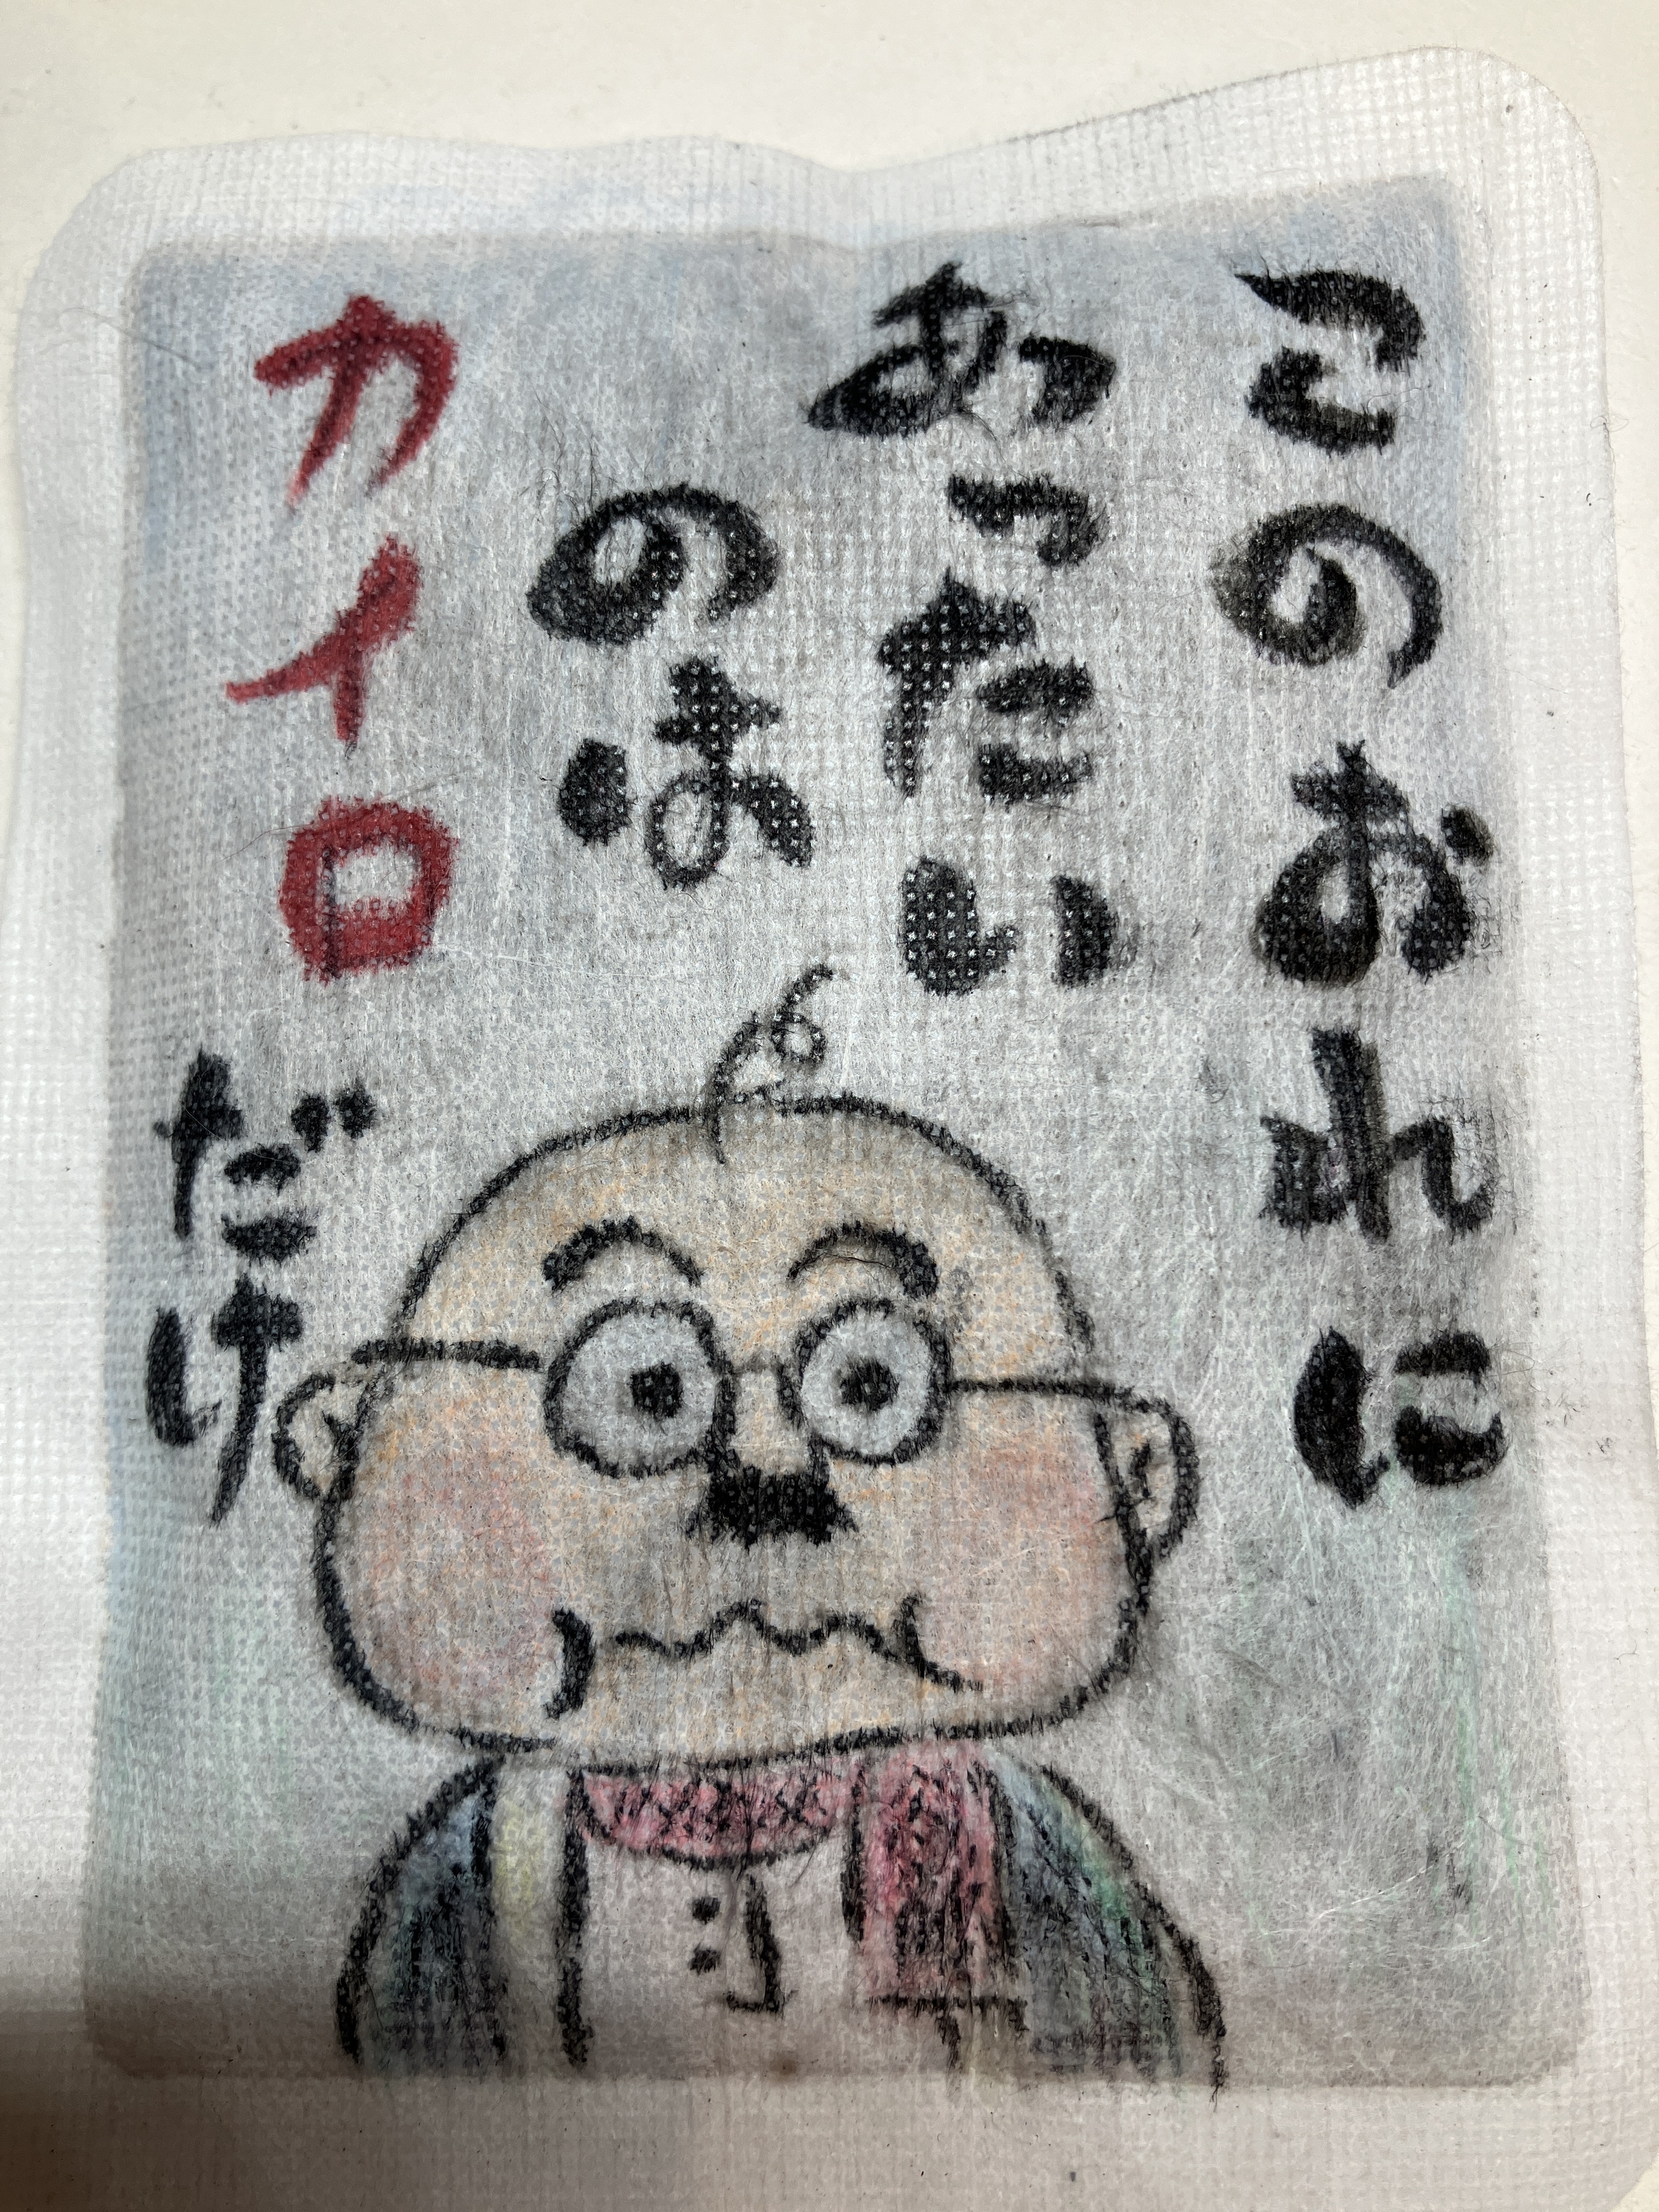 このおれに
あったい
のは
カイロだけ